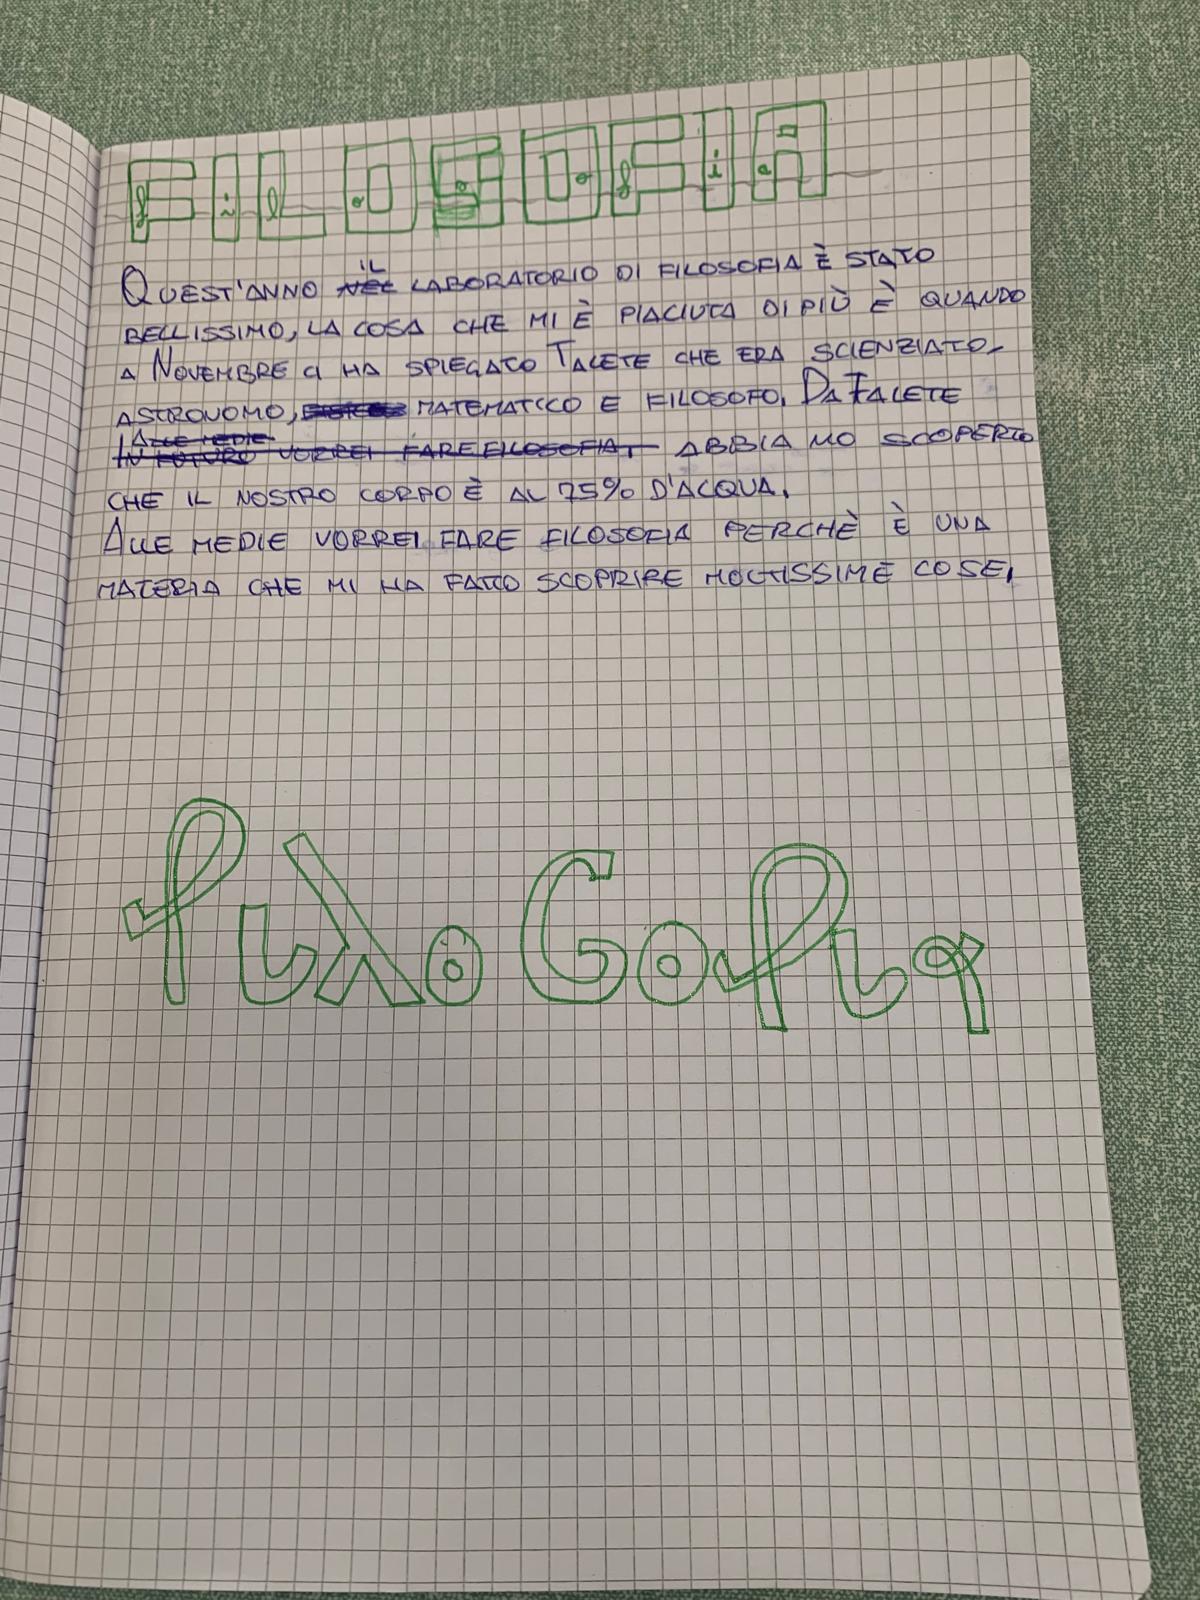 FILOSOFIA
QUEST'ANNO IL LABORATORIO DI FILOSOFIA È STATO
BELLISSIMO, LA COSA CHE MI È PIACIUTA DI PIÙ È QUANDO
A NOVEMBRE CI HA SPIEGATO TALETE CHE ERA SCIENZIATO,
ASTRONOMO, MATEMATICO E FILOSOFO. DA TALETE
ALLE MEDIE
IN FUTURO VORREI FARE FILOSOFIA, ABBIAMO SCOPERTO
CHE IL NOSTRO CORPO È AL 75% D'ACQUA.
ALLE MEDIE VORREI FARE FILOSOFIA PERCHÈ È UNA
MATERIA CHE MI HA FATTO SCOPRIRE MOLTISSIME COSE.
φιλοσοφια